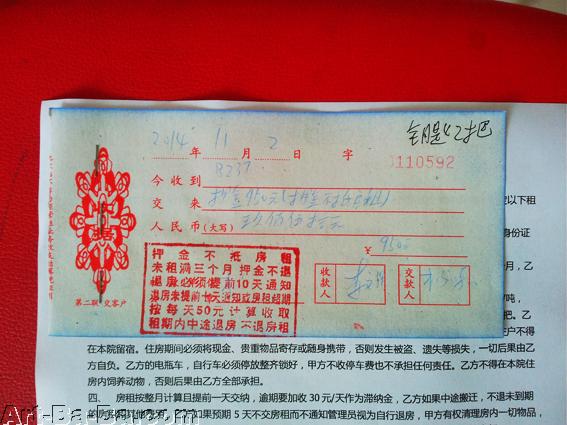 2014年11月2日 字
钥匙2把
110592
今收到 B237
交来 押金950元
人民币(大写) 玖佰伍拾元
¥ 9500
收款人
交款人
押金不抵房租
未租满三个月 押金不退
退房必须提前10天通知
退房未提前十天通知或房租超期
按每天50元计算收取
租期内中途退房不退房租
第二联交客户
定以下租
身份证
月,乙
吨,
乙户不得
在本院留宿。住房期间必须将现金、贵重物品寄存或随身携带,否则发生被盗、遗失等损失,一切后果由乙
方自负。乙方的电瓶车,自行车必须停放整齐锁好,甲方不收停车费也不承担任何责任。乙方不得在本院住
房内饲养动物,否则后果由乙方全部承担。
四、 房租按整月计算且提前一天交纳,逾期要加收 30 元/天作为滞纳金,乙方如果中途搬迁,不退未到期
乙方如果预期 5 天不交房租而不通知管理员视为自行退房,甲方有权清理房内一切物品,